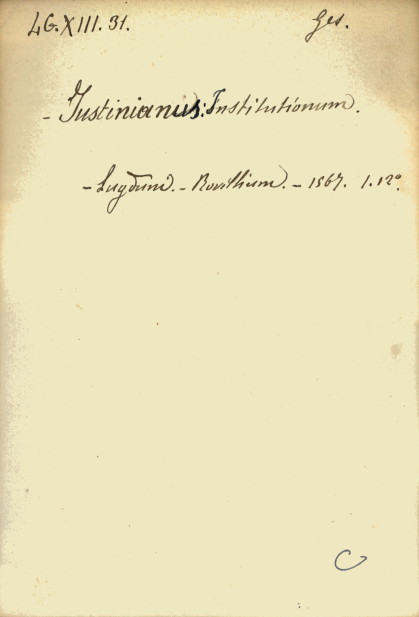 LG.XIII.31. Ges.
- Justinianus: Institutionum.
- Lugduni. - Rovillium. - 1567. 1.12°.
C